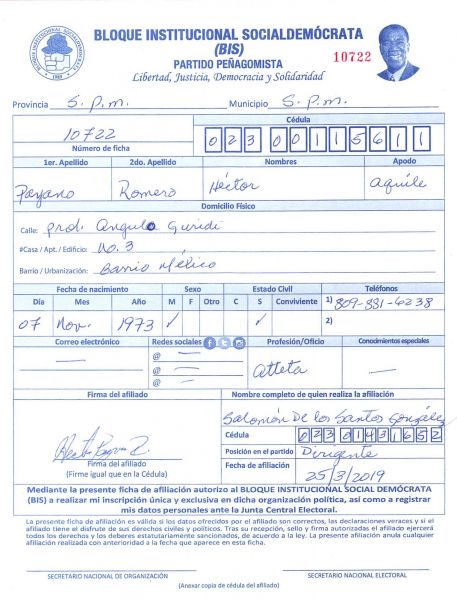 BLOQUE INSTITUCIONAL SOCIALDEMÓCRATA
(BIS)
PARTIDO PEÑAGOMISTA
Libertad, Justicia, Democracia y Solidaridad
10722
Provincia S.P.M. Municipio S.P.M.
10722
Número de ficha
Cédula
023 0011561 1
1er. Apellido 2do. Apellido Nombres Apodo
Payano Romero Héctor Aquile
Domicilio Físico
Calle: prol. Angulo Guridi
#Casa / Apt. / Edificio: No. 3
Barrio / Urbanización: Barrio México
Fecha de nacimiento Sexo Estado Civil Teléfonos
Día Mes Año M F Otro C S Conviviente 1) 809-881-6238
07 Nov. 1973 ✓ ✓ 2)
Correo electrónico Redes sociales Profesión/Oficio Conocimientos especiales
@
@
@
Atleta
Firma del afiliado Nombre completo de quien realiza la afiliación
Salomón De los Santos González
Cédula 023 0143165 2
Posición en el partido Dirigente
Fecha de afiliación 25/3/2019
Firma del afiliado
(Firme igual que en la Cédula)
Mediante la presente ficha de afiliación autorizo al BLOQUE INSTITUCIONAL SOCIAL DEMÓCRATA
(BIS) a realizar mi inscripción única y exclusiva en dicha organización política, así como a registrar
mis datos personales ante la Junta Central Electoral.
La presente ficha de afiliación es válida si los datos ofrecidos por el afiliado son correctos, las declaraciones veraces y si el
afiliado tiene el disfrute de sus derechos civiles y políticos. Tras su recepción, sello y firma autorizadas el afiliado ejercerá
todos los derechos y los deberes estatutariamente sancionados, de acuerdo a la ley. La presente afiliación anula cualquier
afiliación realizada con anterioridad a la fecha que aparece en esta ficha.
SECRETARIO NACIONAL DE ORGANIZACIÓN SECRETARIO NACIONAL ELECTORAL
(Anexar copia de cédula del afiliado)